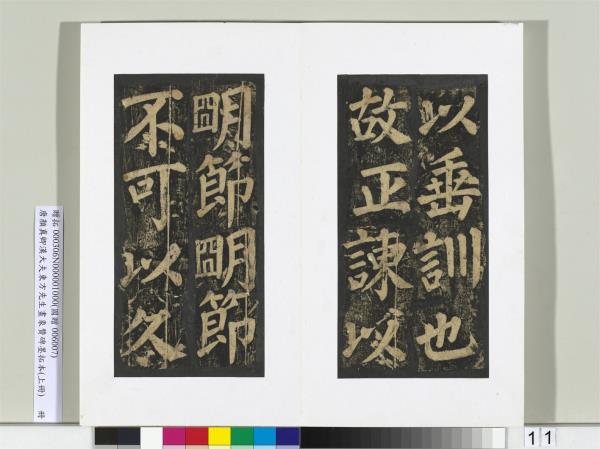 以垂訓也
故正諫以
明節明節
不可以久
贈拓 000306N000001000(國贈 006007)
唐顏真卿漢大夫東方先生畫象贊碑墨拓本(上冊) 冊
11